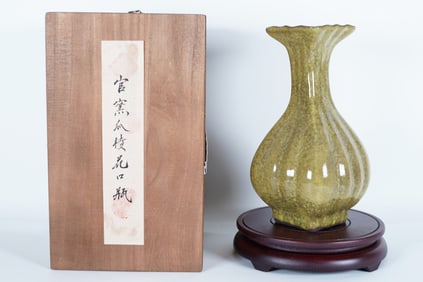 官窯瓜棱花口瓶